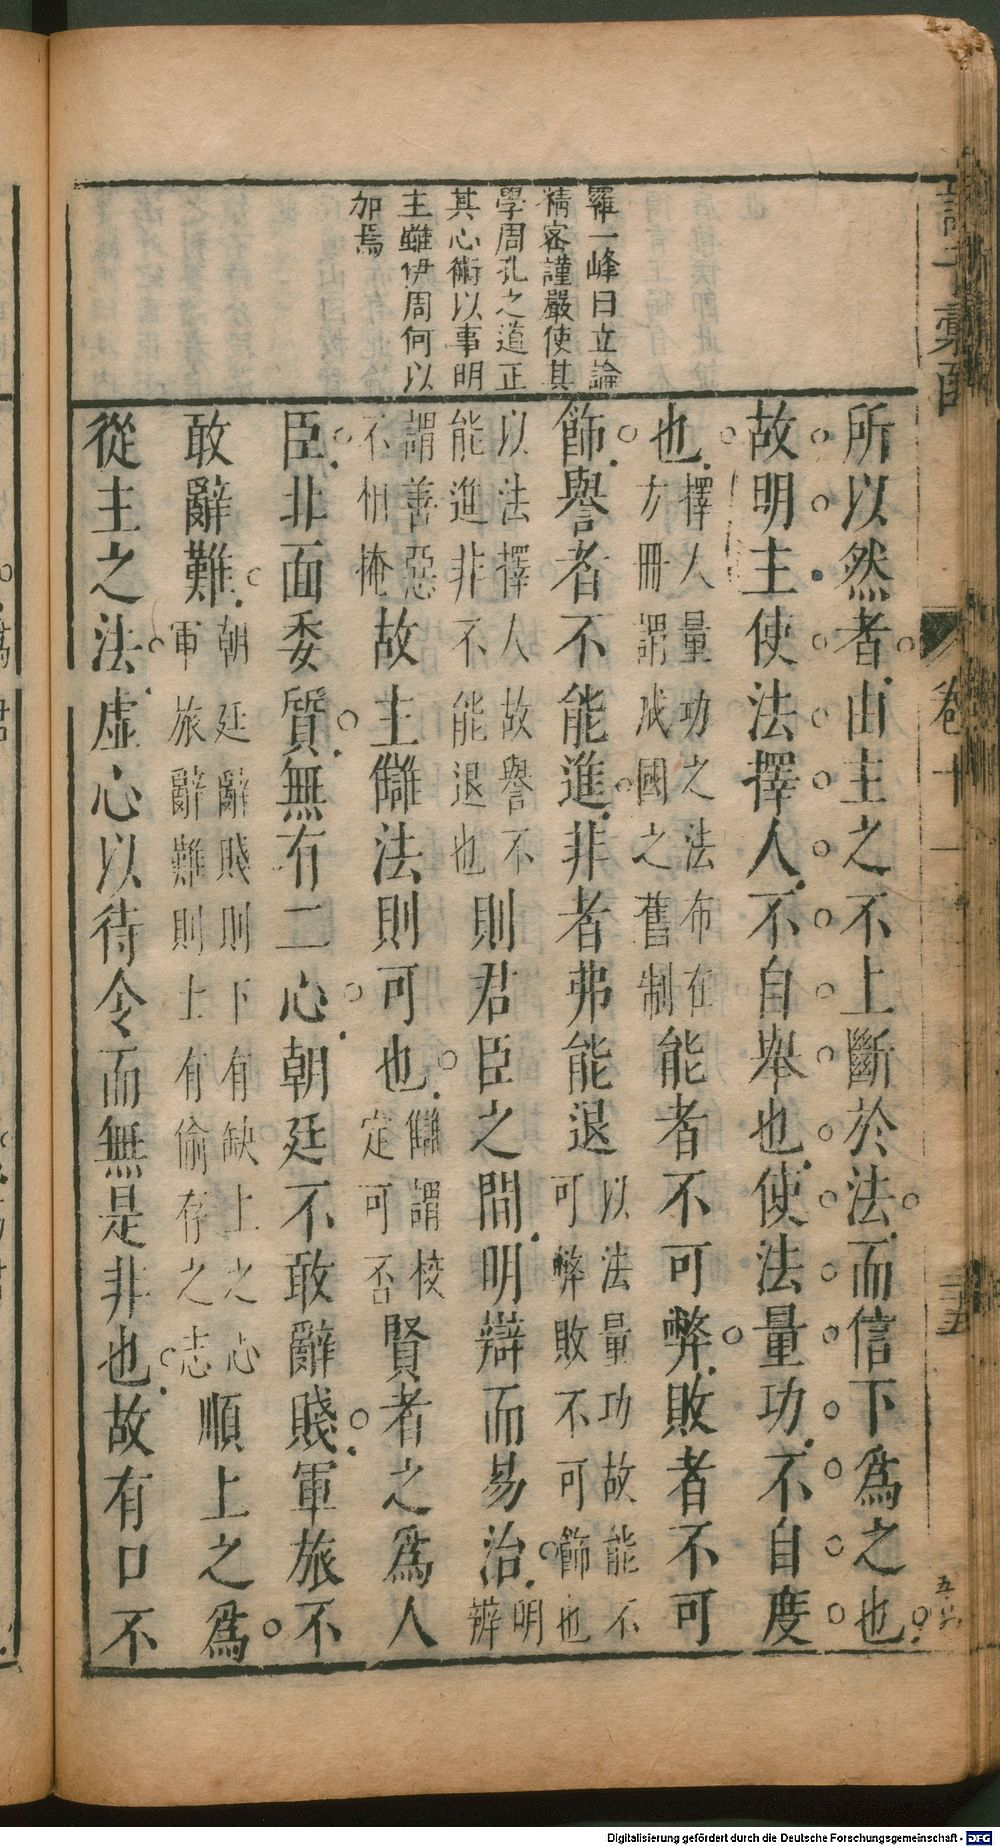 羅一峰曰立論
精密謹嚴使其
學周孔之道正
其心術以事明
主雖伊周何以
加焉
所以然者由主之不上斷於法而信下爲之也
故明主使法擇人不自舉也使法量功不自度
也擇人量功之法布在方冊謂成國之舊制能者不可弊敗者不可
飾譽者不能進非者弗能退以法量功故能不可弊敗不可飾也
以法擇人故譽不能進非不能退也則君臣之間明辯而易治明辨
謂善惡不相掩故主讎法則可也讎謂校定可否賢者之爲人
臣非面委質無有二心朝廷不敢辭賤軍旅不
敢辭難朝廷辭賤則下有缺上之心軍旅辭難則上有偷存之志順上之爲
從主之法虛心以待令而無是非也故有口不
卷十一
三五
Digitalisierung gefördert durch die Deutsche Forschungsgemeinschaft - DFG